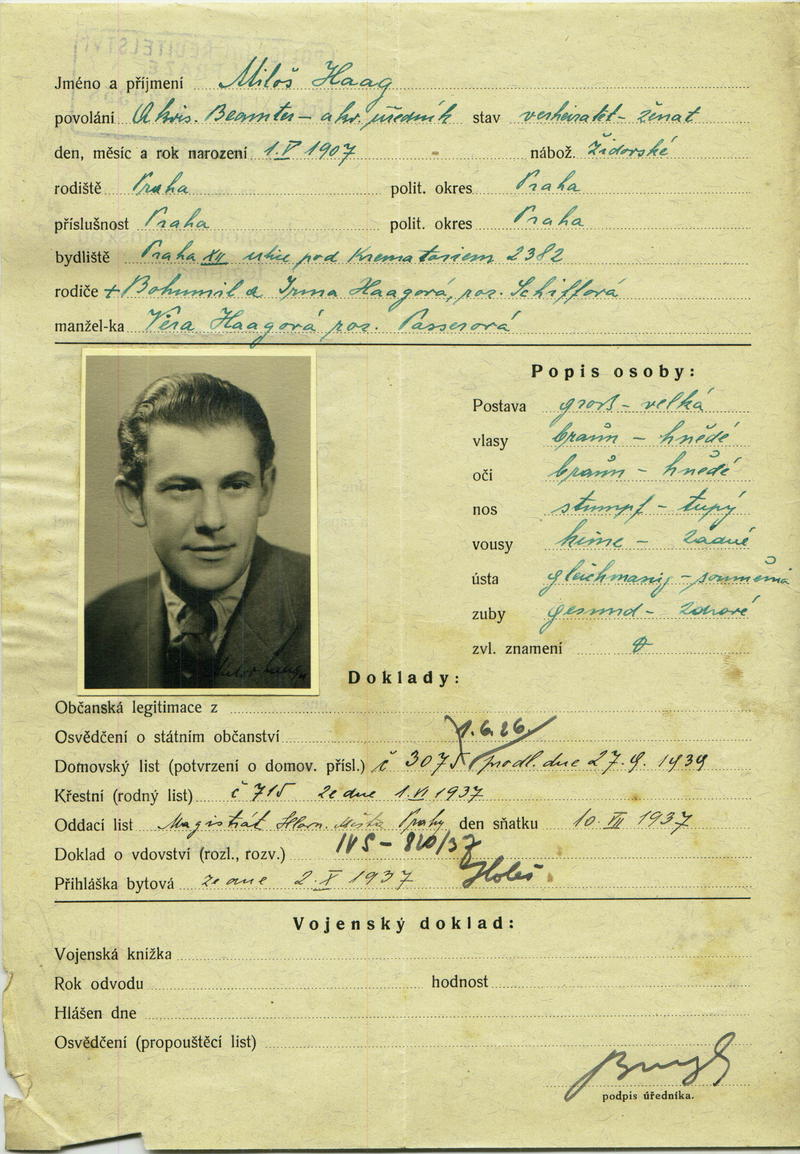 Jméno a příjmení Miloš Haag
povolání Akvis. Beamter – akv. úředník stav verheiratet – ženat
den, měsíc a rok narození 1.V 1907 nábož. Židovské
rodiště Praha polit. okres Praha
příslušnost Praha polit. okres Praha
bydliště Praha XII ulice pod Krematoriem 2382
rodiče + Bohumil a Irma Haagová, roz. Schiffová
manžel-ka Věra Haagová roz. Passerová
Popis osoby:
Postava groß – velká
vlasy braun – hnědé
oči braun – hnědé
nos stumpf – tupý
vousy keine – žádné
ústa – souměrná
zuby gesund – zdravé
zvl. znamení
Doklady:
Občanská legitimace z
Osvědčení o státním občanství 1.6.26.
Domovský list (potvrzení o domov. přísl.) č 3075 prodl. dne 27.9. 1939
Křestní (rodný list) č 715 ze dne 1.VI 1937
Oddací list Magistrát Hlavn. Města Prahy den sňatku 10. VII 1937
Doklad o vdovství (rozl., rozv.) IVS – 820/37
Přihláška bytová ze dne 2.X 1937
Vojenský doklad:
Vojenská knížka
Rok odvodu hodnost
Hlášen dne
Osvědčení (propouštěcí list)
podpis úředníka.